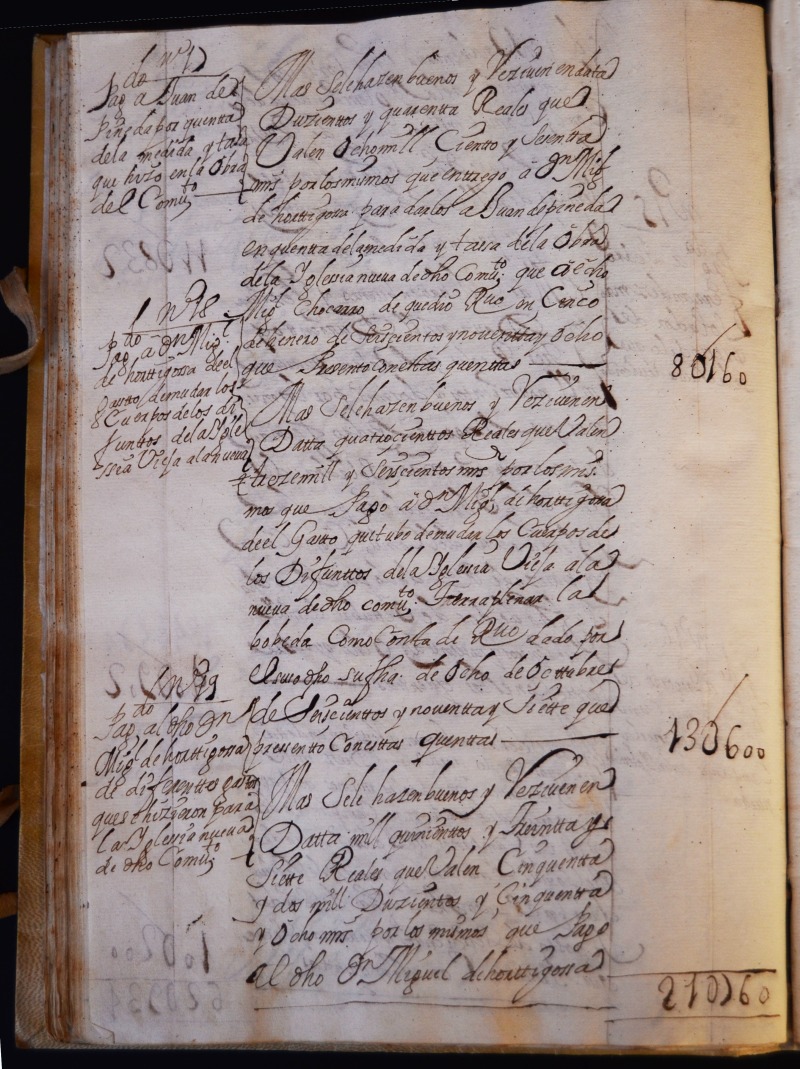 do nº 17
Pag a Juan de
Pineda por quenta
de la medida y tasa
que hizo en la obra
del Comto
Mas Sele hazen buenos y Reziuen en data
Duzientos y quarenta Reales que
Valen Ocho mill Ciento y Sesentta
mrs por los mismos que entrego a Dn Migl
de horttigosa para darlos a Juan de pineda
en quenta de la medida y tassa de la Obra
de la Yglesia nueva de dho Comto que a echo
Migl Chocarro de que dio Rvo en Cinco
de henero de Seiscientos y noventta y ocho
que Presento con esttas quenttas
80160
nº 18
Pdo Pag a Dn Migl
de horttigosa de el
Gastto de mudar los
Cuerpos de los di
funttos de la Ygle
ssia Vieja a la nueva
Mas Sele hazen buenos y Reziuen en
Datta quatrocienttos Reales que Valen
treze mill y Seiscientos mrs por los mis
mos que Pago a Dn Migl de horttigosa
de el Gasto que tubo de mudar los Cuerpos de
los Difunttos de la Yglesia Vieja a la
nueva de dho comto Terraplenar la
bobeda Como Consta de Rvo dado por
el suso dho su fha de Ocho de Octtubre
de Seiscienttos y noventta y Siette que
pressento con esttas quenttas
130600
nº 19
Pdo Pag al dho Dn
Migl de horttigosa
de diferenttes gastos
que se hizieron para
la Yglesia nueva
de dho Comto
Mas Sele hazen buenos y Reziuen en
Datta mill quinienttos y treintta y
Siette Reales que Valen Cinquentta
y dos mill Duzientos y Cinquentta
y Ocho mrs por los mismos que Pago
al dho Dn Miguel de horttigossa
210760